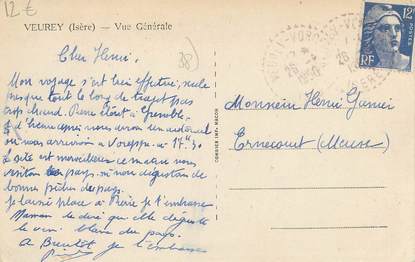 12€
VEUREY (Isère) — Vue Générale
Cher Henri.
Mon voyage s'est bien effectué, seule
presque tout le long du trajet pas
trop chaud. Pierre était à Grenoble
nous avons un autorail
où nous arrivons à Voreppe à 17h 30
Le site est merveilleux ce matin nous
visitons le pays. où nous dégustons de
bonnes pêches du pays.
Je laisse place à Pierre je t'embrasse
Maman
le vin blanc du pays.
A Bientôt je t'embrasse
COMBIER IMP. MACON
12F
POSTES
RF
26
1950
ISÈRE
Monsieur Henri Garnier
Ernecourt (Meuse)